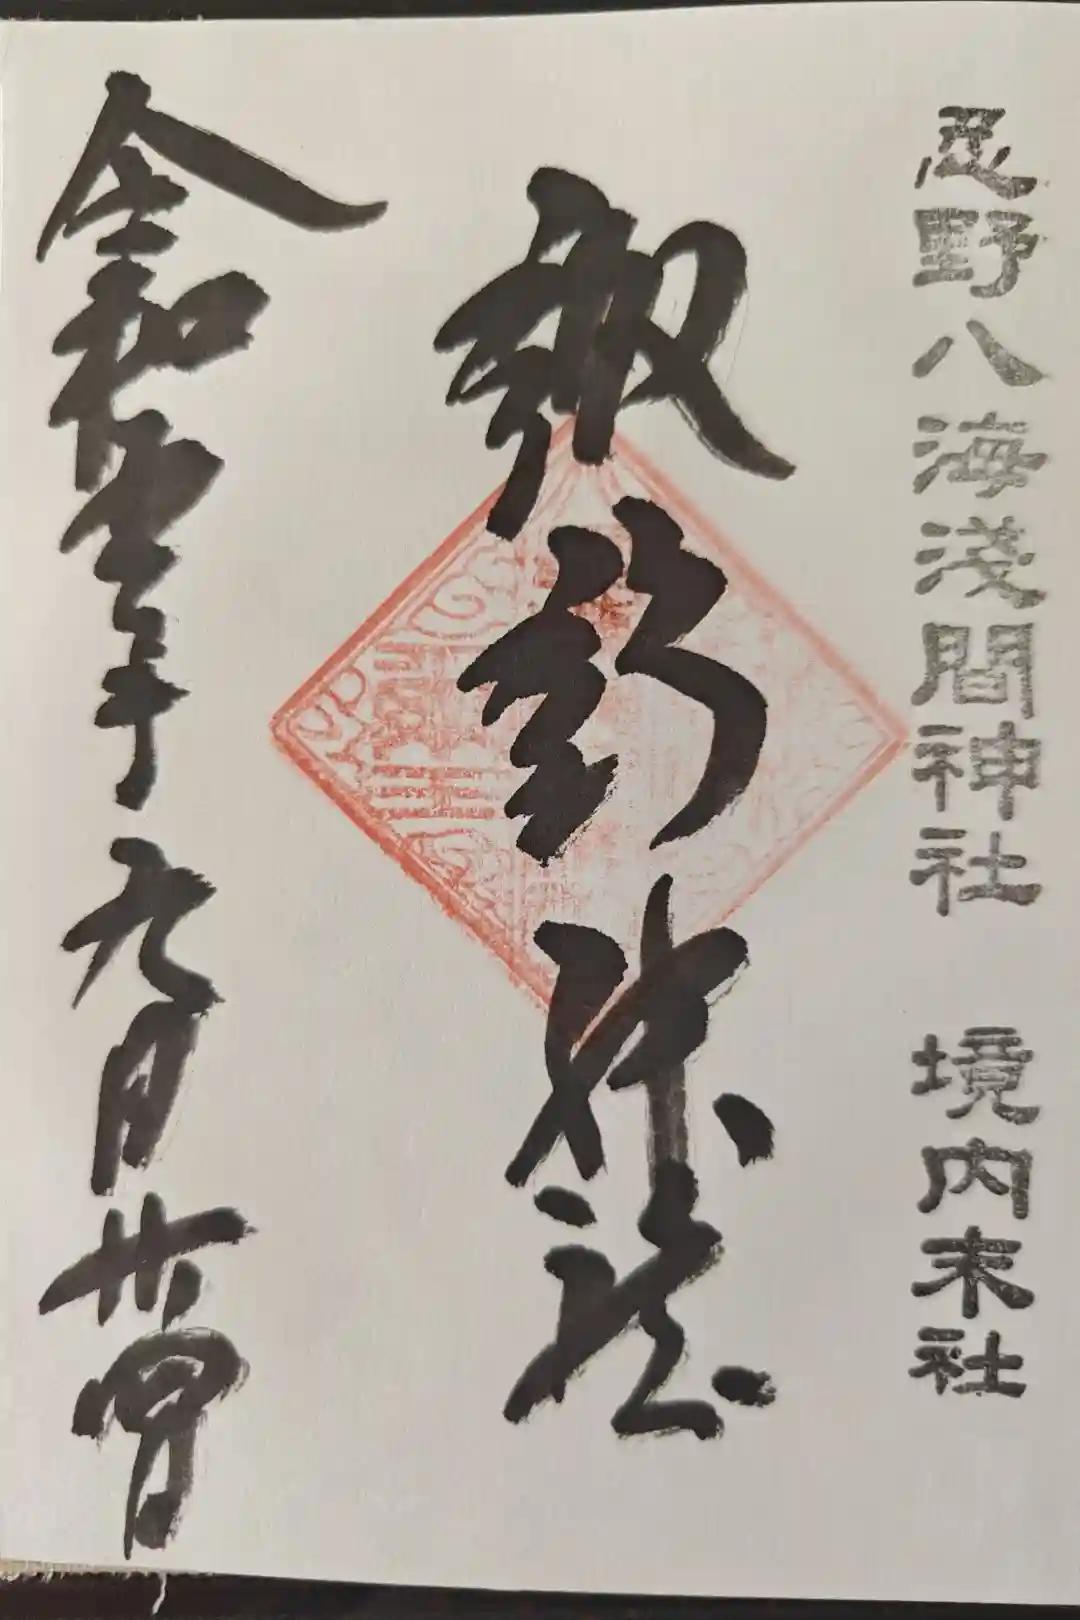 忍野八海淺間神社 境内末社
神社
令和五年九月廿四日